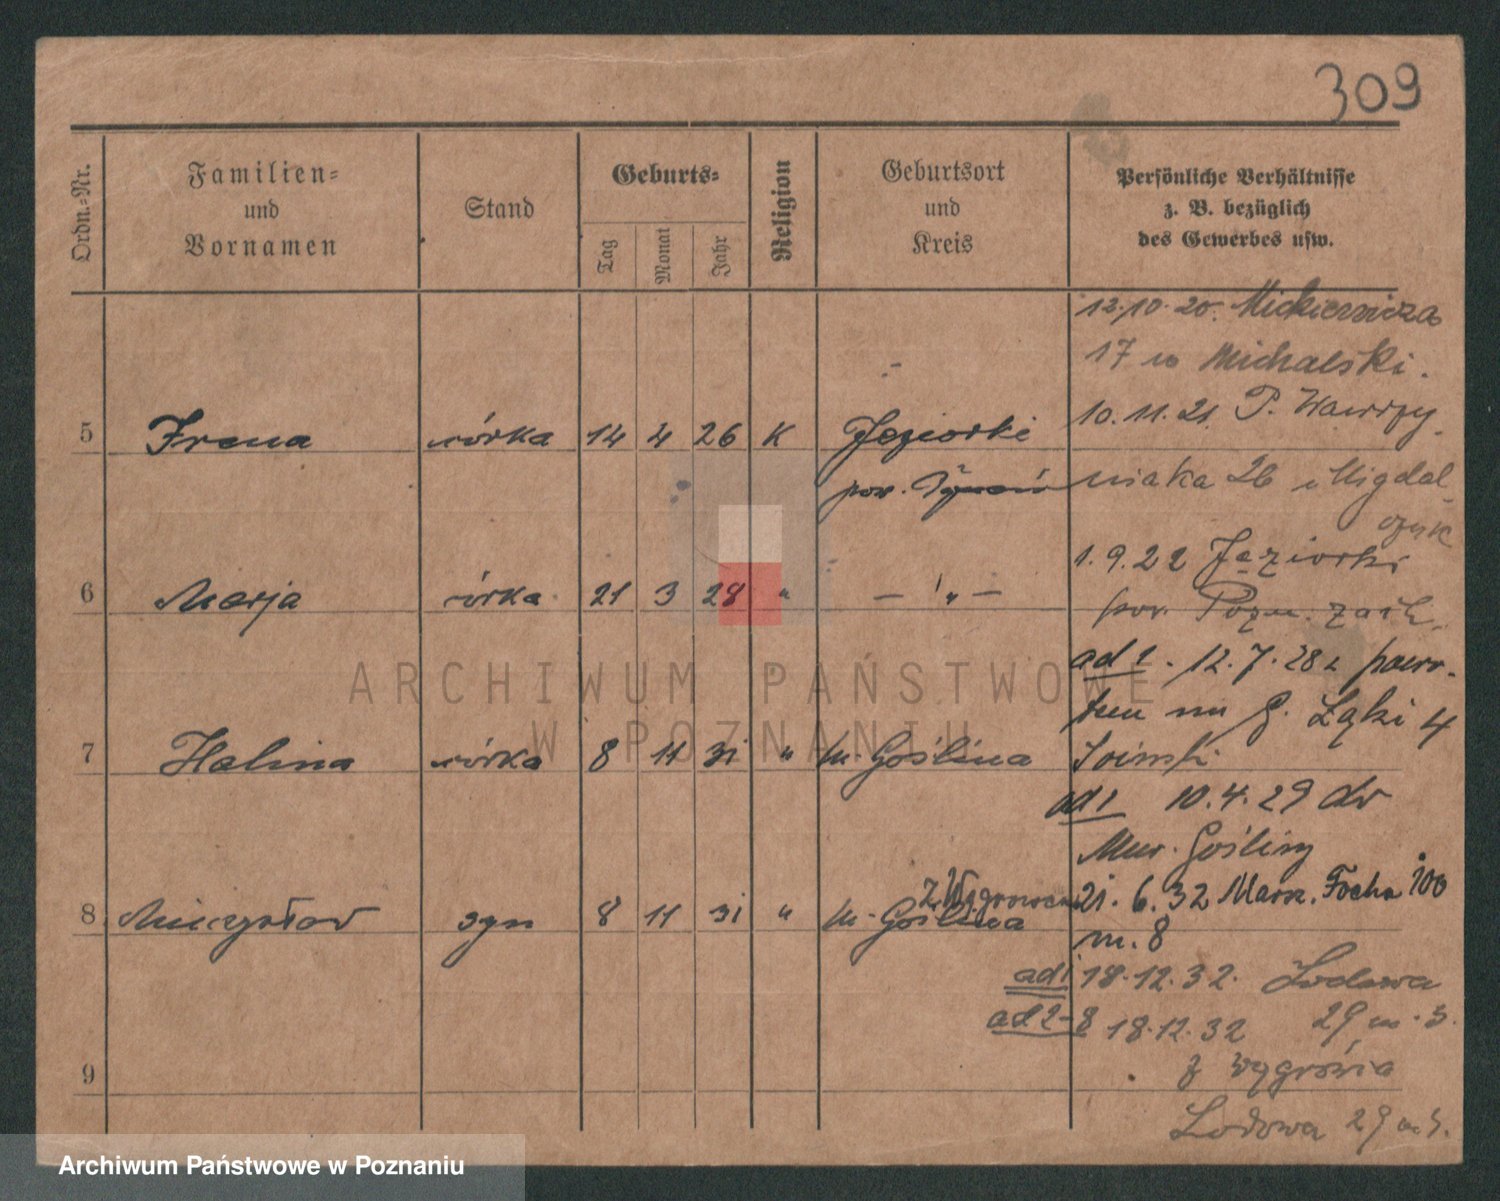 309
Ordn.-Nr.
Familien-
und
Vornamen
Stand
Geburts-
Tag
Monat
Jahr
Religion
Geburtsort
und
Kreis
Persönliche Verhältnisse
z. B. bezüglich
des Gewerbes usw.
12.10.20. Mickiewicza
17 u Michalski.
10.11.21. P. Wawrzy
5 Irena córka 14 4 26 K Jeziorki
pow.
niaka 26 u Migdal
czyk
1.9.22 Jeziorki
6 Marja córka 21 3 28 " — " —
pow. Pozn. zach.
ad 1. 12.7.28 z powr.
G. Łąki 4
7 Halina córka 8 11 31 " M. Goślina
ad 1 10.4.29 do
Mur. Gośliny
z Wągrowca 21.6.32 Marsz. Focha 100
8 Mieczysław syn 8 11 31 " M. Goślina
m. 8
ad 1 18.12.32. Lodowa
29 m. 3.
ad 2-8 18.12.32
z
9
Lodowa 29 m 3.
ARCHIWUM PAŃSTWOWE
W POZNANIU
Archiwum Państwowe w Poznaniu